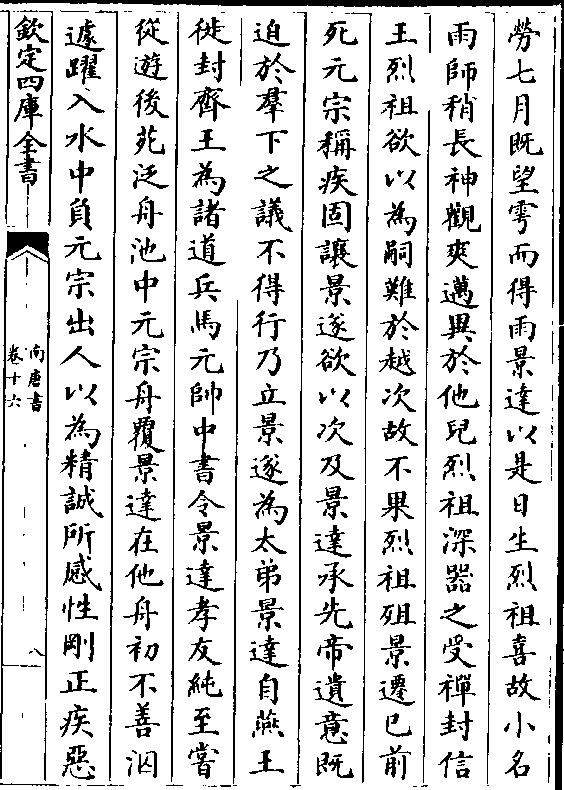 勞七月既望雩而得雨景達以是日生烈祖喜故小名
雨師稍長神觀爽邁異於他兒烈祖深器之受禪封信
王烈祖欲以為嗣難於越次故不果烈祖殂景遷已前
死元宗稱疾固讓景遂欲以次及景達承先帝遺意既
迫於羣下之議不得行乃立景遂為太弟景達自燕王
徙封齊王為諸道兵馬元帥中書令景達孝友純至嘗
從遊後苑泛舟池中元宗舟覆景達在他舟初不善泅
遽躍入水中負元宗出人以為精誠所感性剛正疾惡
欽定四庫全書
南唐書
卷十六
八